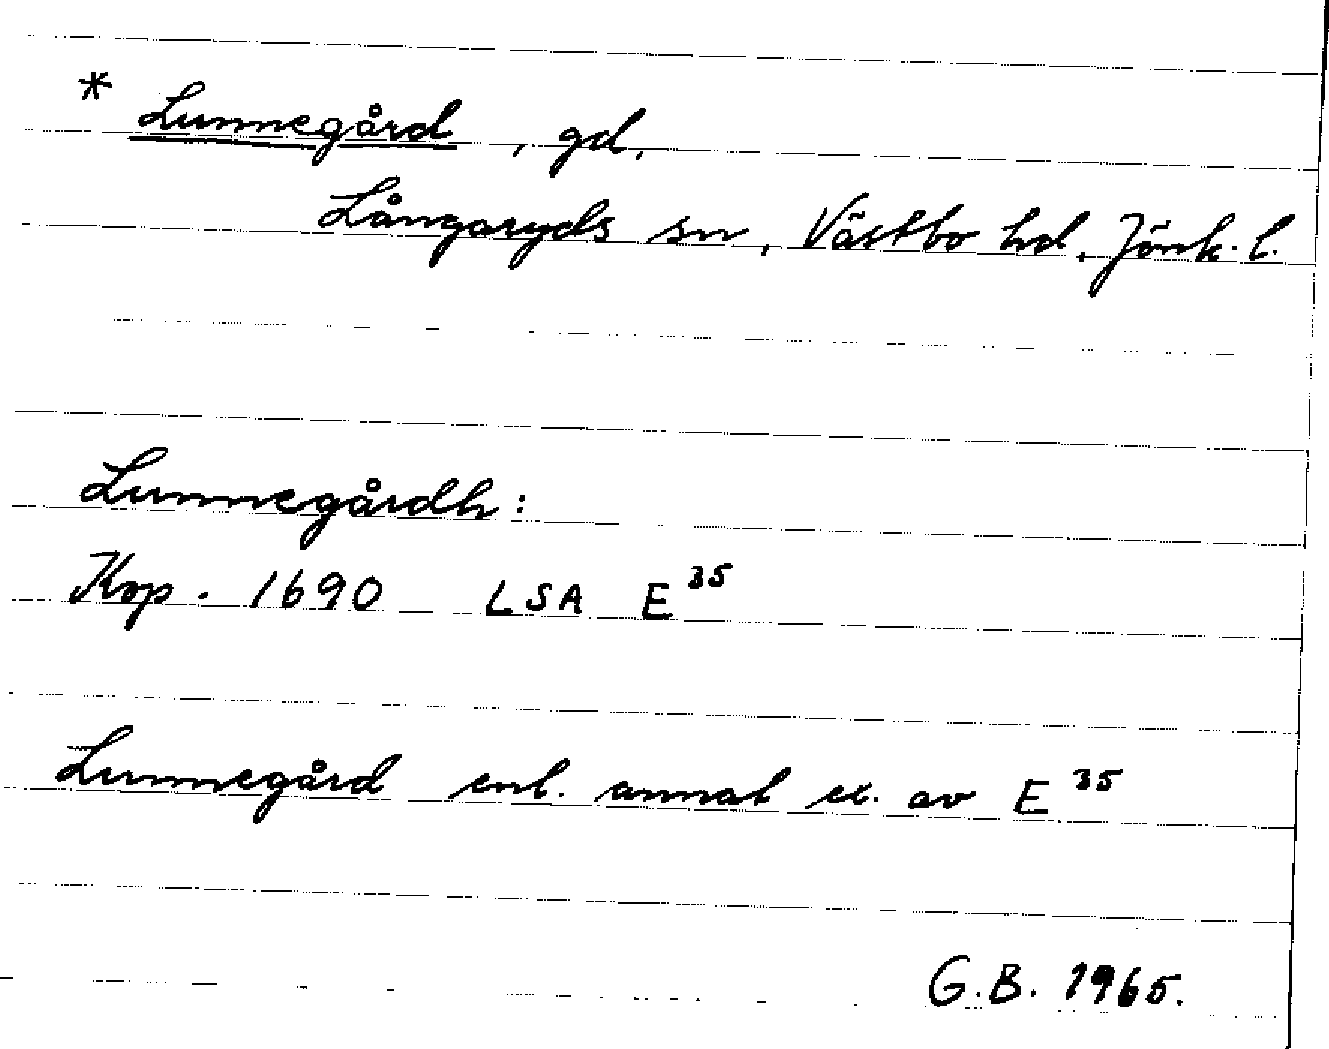 * Lunnegård, gd,
Långaryds sn, Västbo hd, Jönk. l.
Lunnegårdh:
Kop. 1690 LSA E³⁵
Lunnegård enl. annat ex. av E³⁵
G.B. 1965.